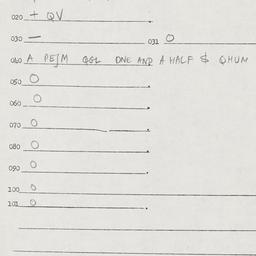 020 + QV
030 — 031 0
040 A PEJM QGL ONE AND A HALF & QHUM
050 0
060 0
070 0
080 0
090 0
100 0
101 0